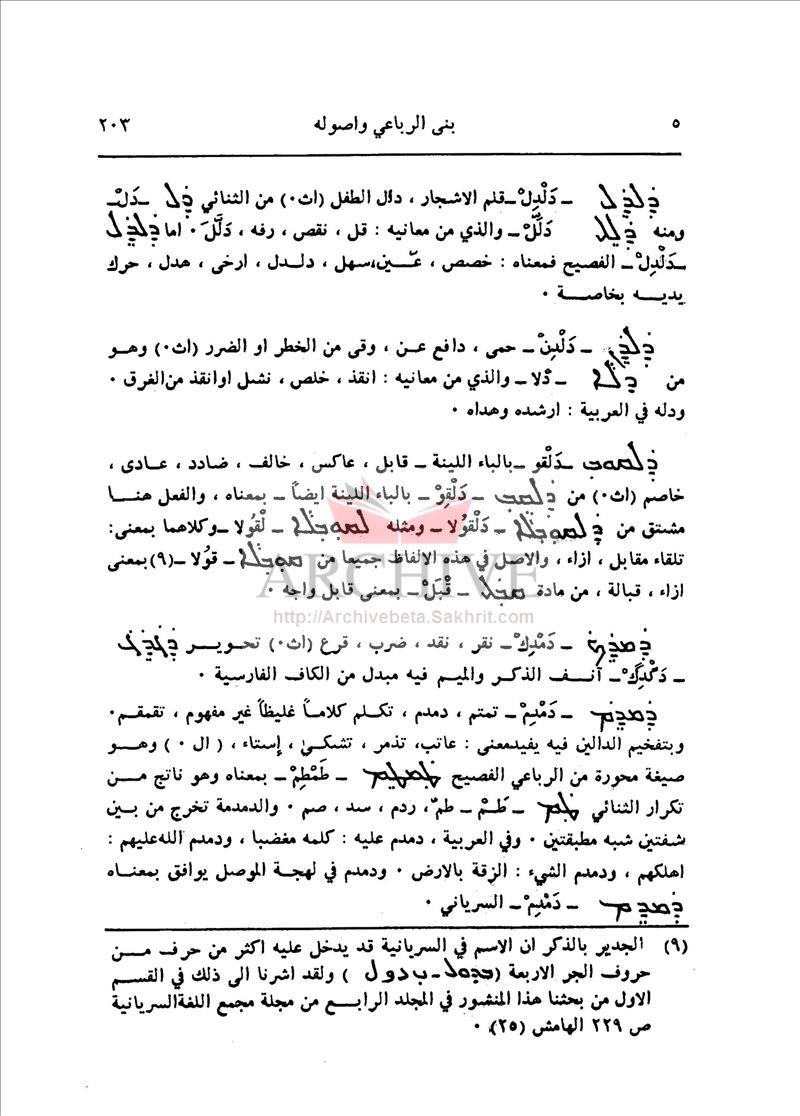 ٥ بنى الرباعي واصوله ٢٠٣
ܕܲܠܕܸܠ ـ دَلْدِلْ ـ قلم الاشجار ، دلل الطفل (اث٠) من الثنائي ܕܲܠ ـ دَلْ ـ
ومنه ܕܲܠܸܠ دَلِّلْ ـ والذي من معانيه : قل ، نقص ، رفه ، دَلَّلَ ٠ اما ܕܲܠܕܸܠ
ـ دَلْدِلْ ـ الفصيح فمعناه : خصص ، عيّن ، سهل ، دلدل ، ارخى ، هدل ، حرك
يديه بخاصة ٠
ܕܲܠܕܸܢ ـ دَلْدِنْ ـ حمى ، دافع عن ، وقى من الخطر او الضرر (اث٠) وهو
من ـ دُلا ـ والذي من معانيه : انقذ ، خلص ، نشل اوانقذ من الغرق ٠
ودله في العربية : ارشده وهداه ٠
ـ دَلْقو ـ بالباء اللينة ـ قابل ، عاكس ، خالف ، ضادد ، عادى ،
خاصم (اث٠) من ـ دَلْقِوْ ـ بالباء اللينة ايضاً ـ بمعناه ، والفعل هنا
مشتق من ـ دَلْقُولا ـ ومثله ـ لْقُولا ـ وكلاهما بمعنى :
تلقاء مقابل ، ازاء ، والاصل في هذه الالفاظ جميعا من ـ قوُلا ـ (٩) بمعنى
ازاء ، قبالة ، من مادة ـ قْبَلْ ـ بمعنى قابل واجه ٠
ARCHIVE
http://Archivebeta.Sakhrit.com
ـ دَمْدِكْ ـ نقر ، نقد ، ضرب ، قرع (اث٠) تحوير
ـ دَكْدِكْ ـ آنف الذكر والميم فيه مبدل من الكاف الفارسية ٠
ܕܲܡܕܸܡ ـ دَمْدِمْ ـ تمتم ، دمدم ، تكلم كلاماً غليظاً غير مفهوم ، تقمقم ٠
وبتفخيم الدالين فيه يفيد معنى : عاتب ، تذمر ، تشكىٰ ، إستاء ، (ال ٠) وهو
صيغة محورة من الرباعي الفصيح ܛܲܡܛܸܡ ـ طَمْطِمْ ـ بمعناه وهو ناتج من
تكرار الثنائي ܛܲܡ ـ طَمْ ـ طمّ ، ردم ، سد ، صم ٠ والدمدمة تخرج من بين
شفتين شبه مطبقتين ٠ وفي العربية ، دمدم عليه : كلمه مغضبا ، ودمدم الله عليهم :
اهلكهم ، ودمدم الشيء : الزقة بالارض ٠ ودمدم في لهجة الموصل يوافق بمعناه
ܕܲܡܕܸܡ ـ دَمْدِمْ ـ السرياني ٠
(٩) الجدير بالذكر ان الاسم في السريانية قد يدخل عليه اكثر من حرف من
حروف الجر الاربعة ( ܒܕܘܠ ـ ب د و ل ) ولقد اشرنا الى ذلك في القسم
الاول من بحثنا هذا المنشور في المجلد الرابع من مجلة مجمع اللغة السريانية
ص ٢٢٩ الهامش (٢٥) ٠